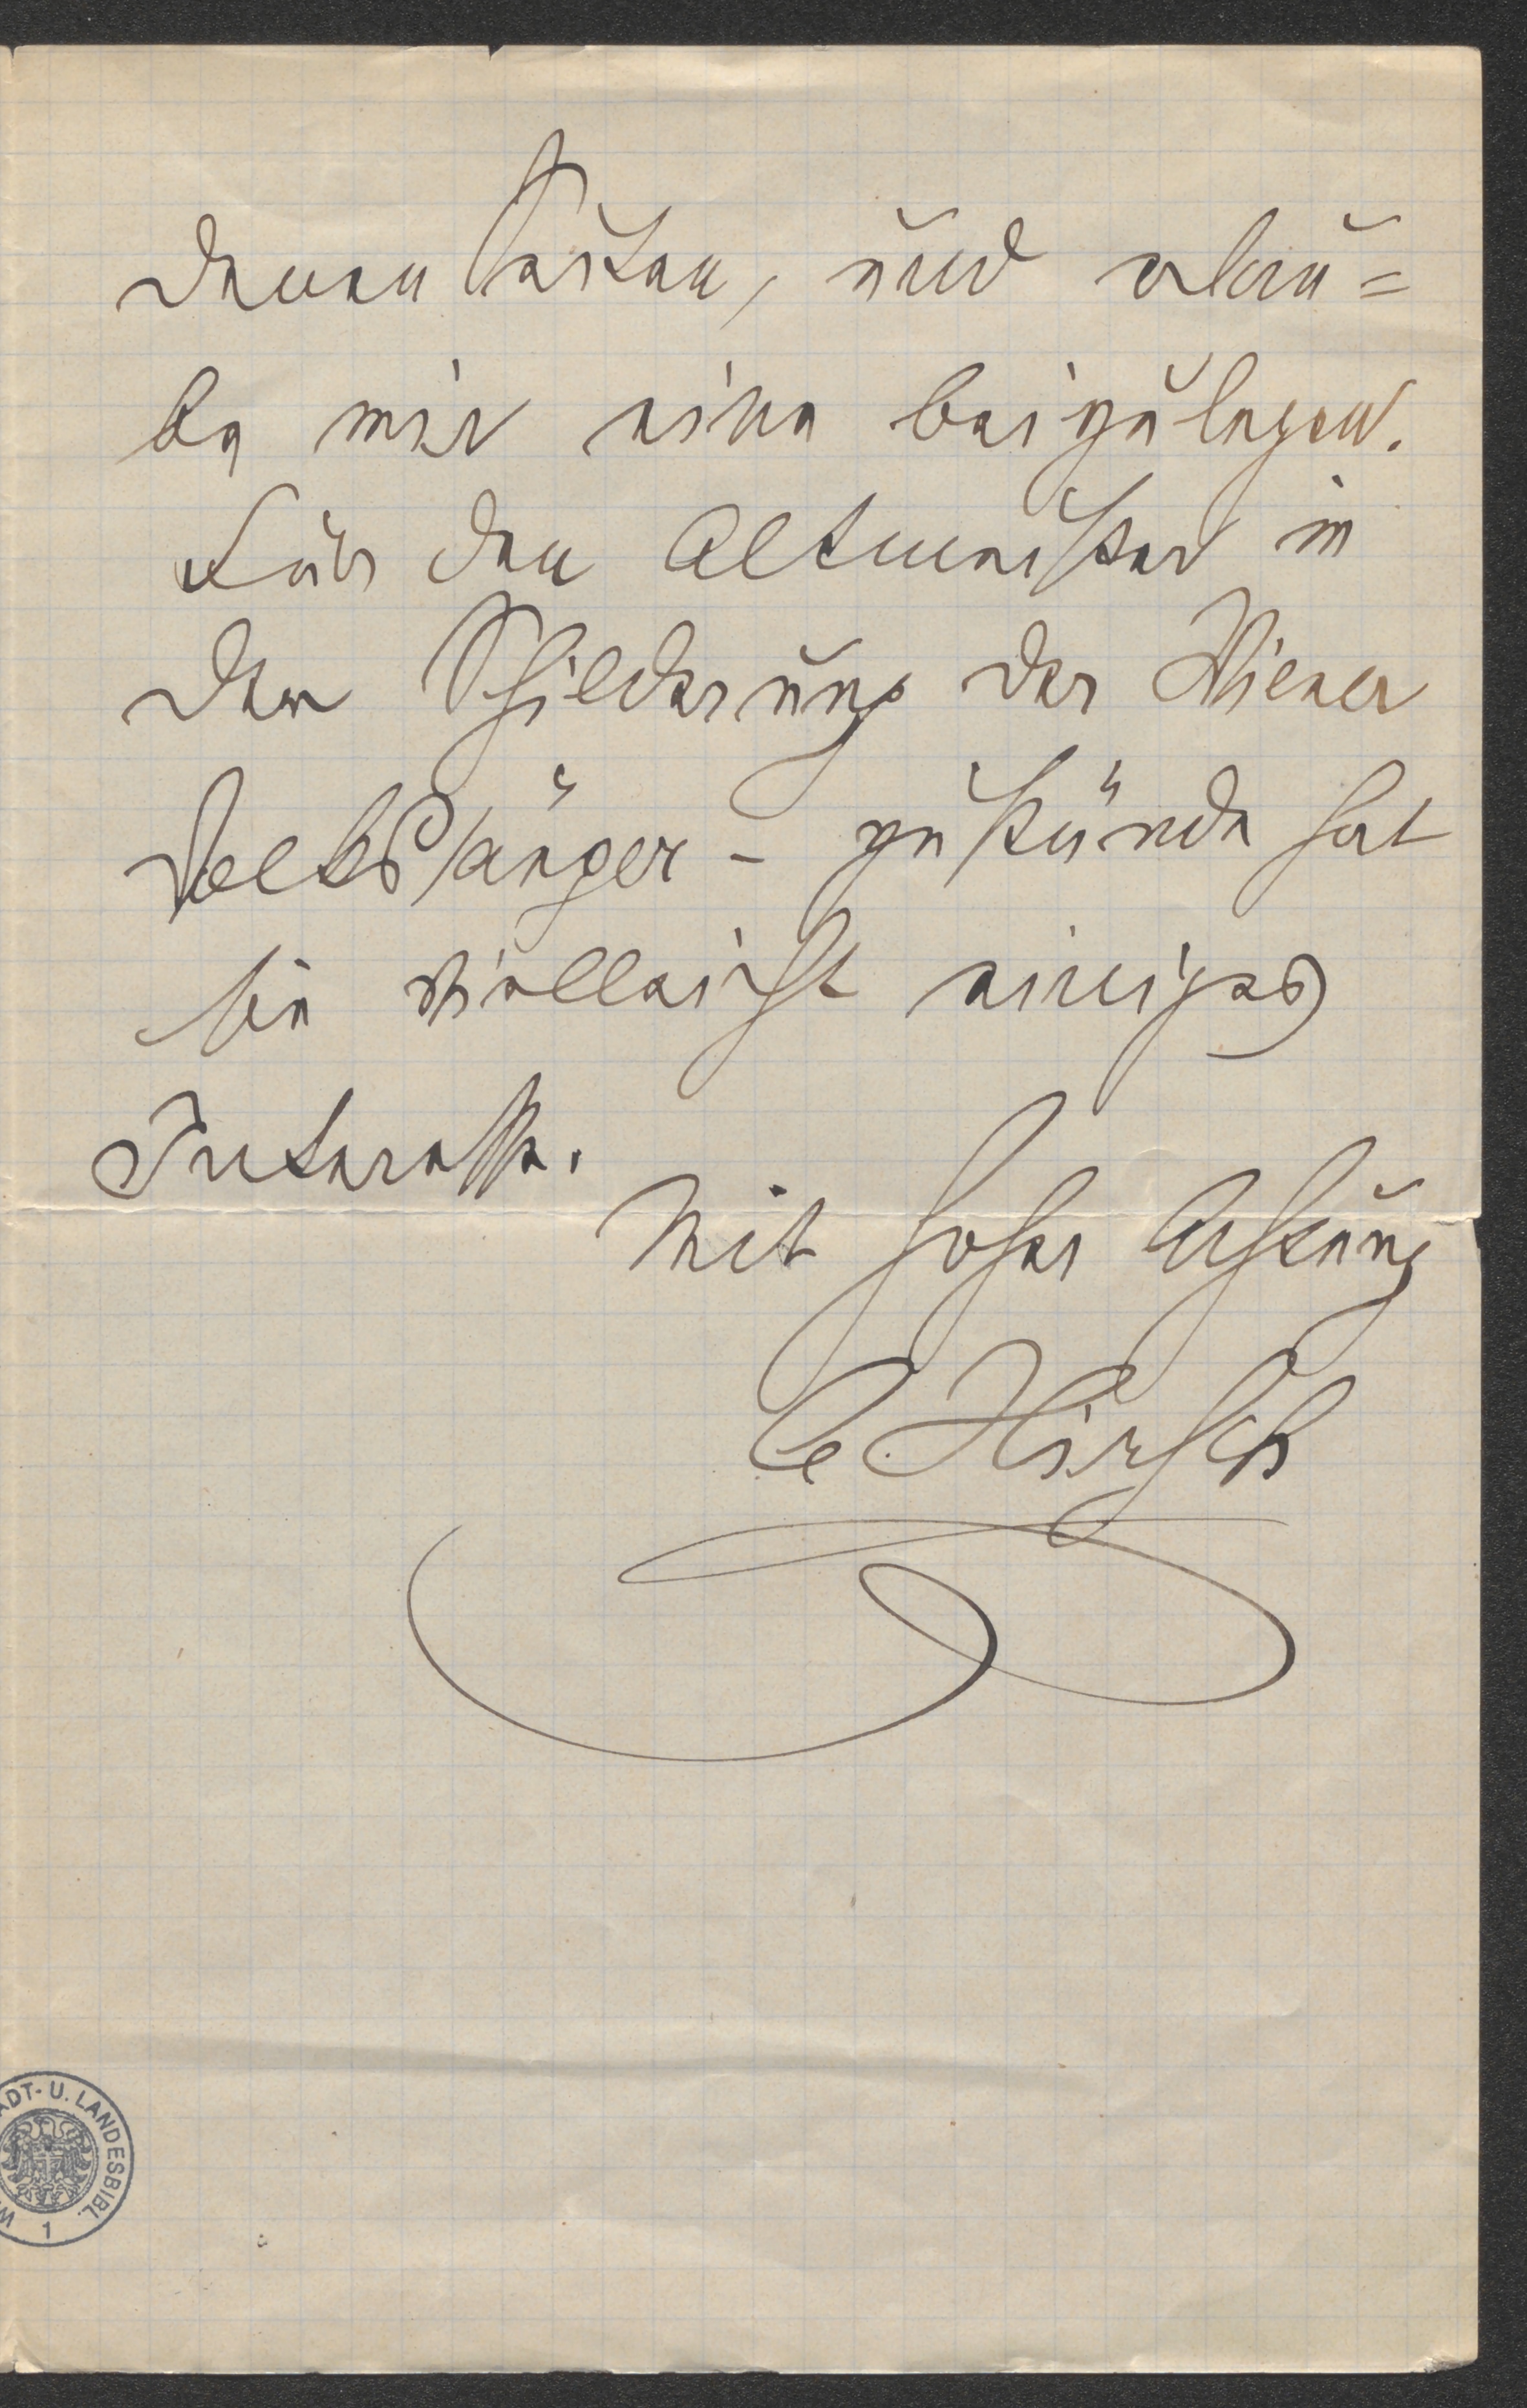 denen Seiten, und erlau=
be mir eine beizulegen.
Für den Altmeister in
der Schilderung der Wiener
Volkssänger-zustände hat
sie vielleicht einiges
Interesse.
Mit hoher Achtung
CHirsch
ADT- U. LANDESBIBL.
W
1